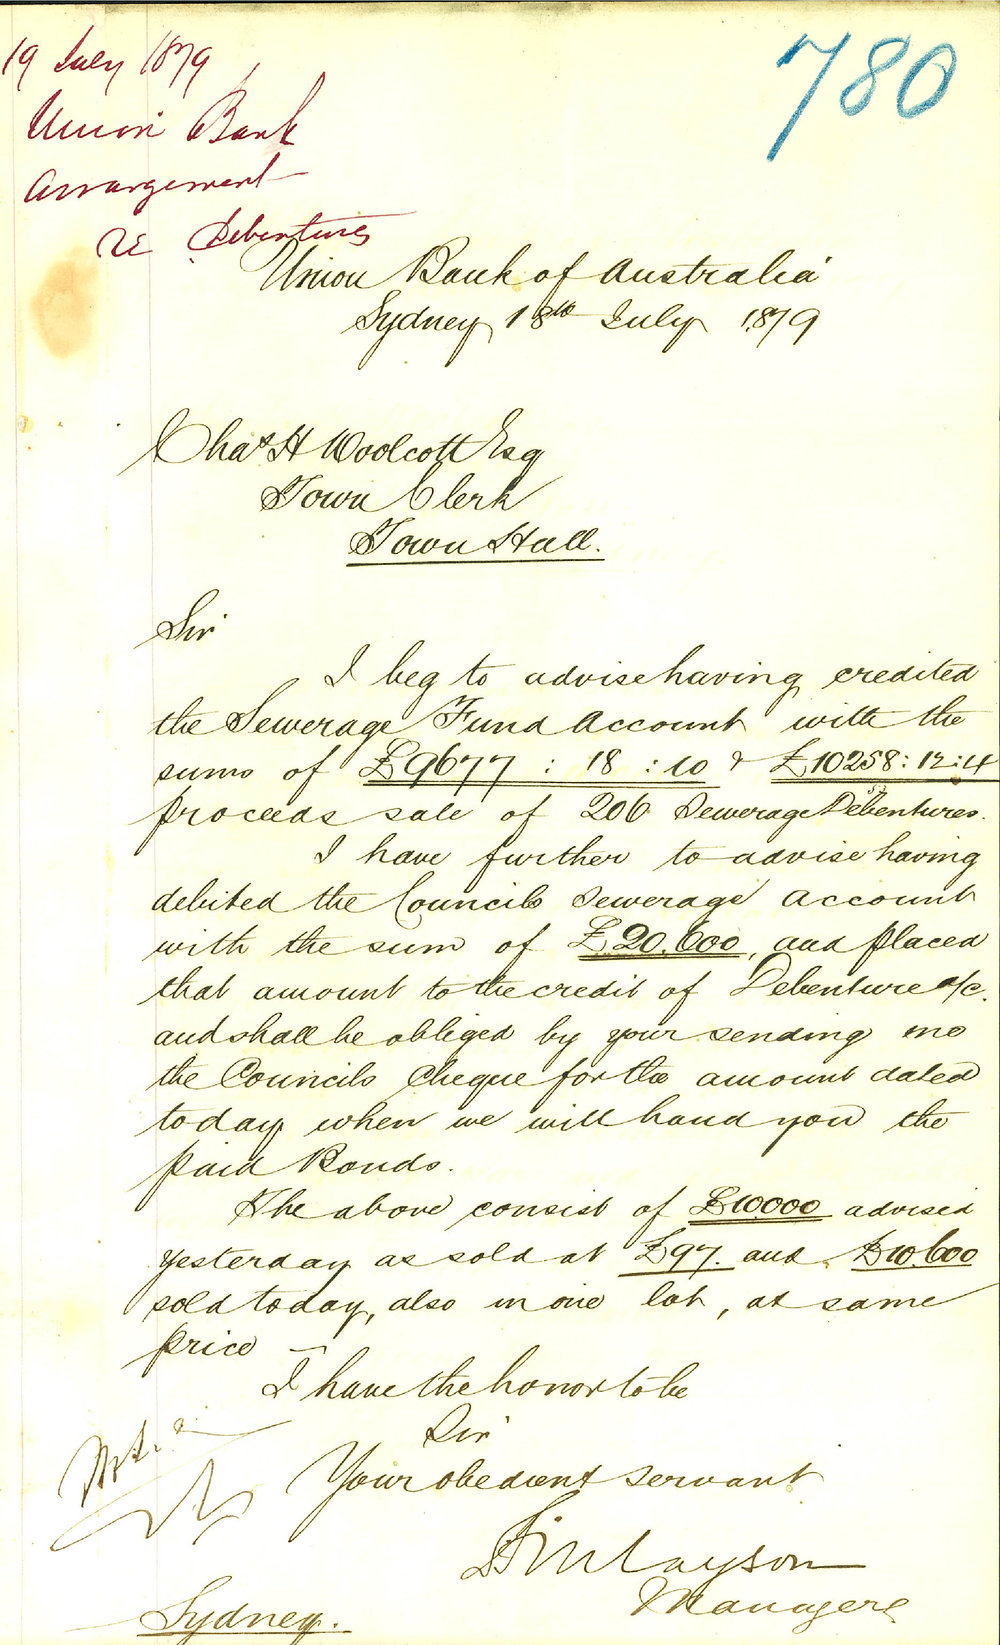 19 July 1879
780
Union Bank
Arrangement
re Debentures
Union Bank of Australia
Sydney 18th July 1879
Chas H Woolcott Esq
Town Clerk
Town Hall.
Sir
I beg to advise having credited
the Sewerage Fund Account with the
sums of £9677 : 18 : 10 & £10258 : 12 : 4
proceeds sale of 206 Sewerage Debentures.
I have further to advise having
debited the Councils Sewerage Account
with the sum of £20.600, and placed
that amount to the credit of Debenture a/c.
and shall be obliged by your sending me
the Councils Cheque for the amount dated
today when we will hand you the
paid Bonds.
The above consist of £10000 advised
yesterday as sold at £97. and £10.600
sold today, also in one lot, at same
price —
I have the honor to be
Sir
Your obedient servant
Finlayson
Manager
Sydney.